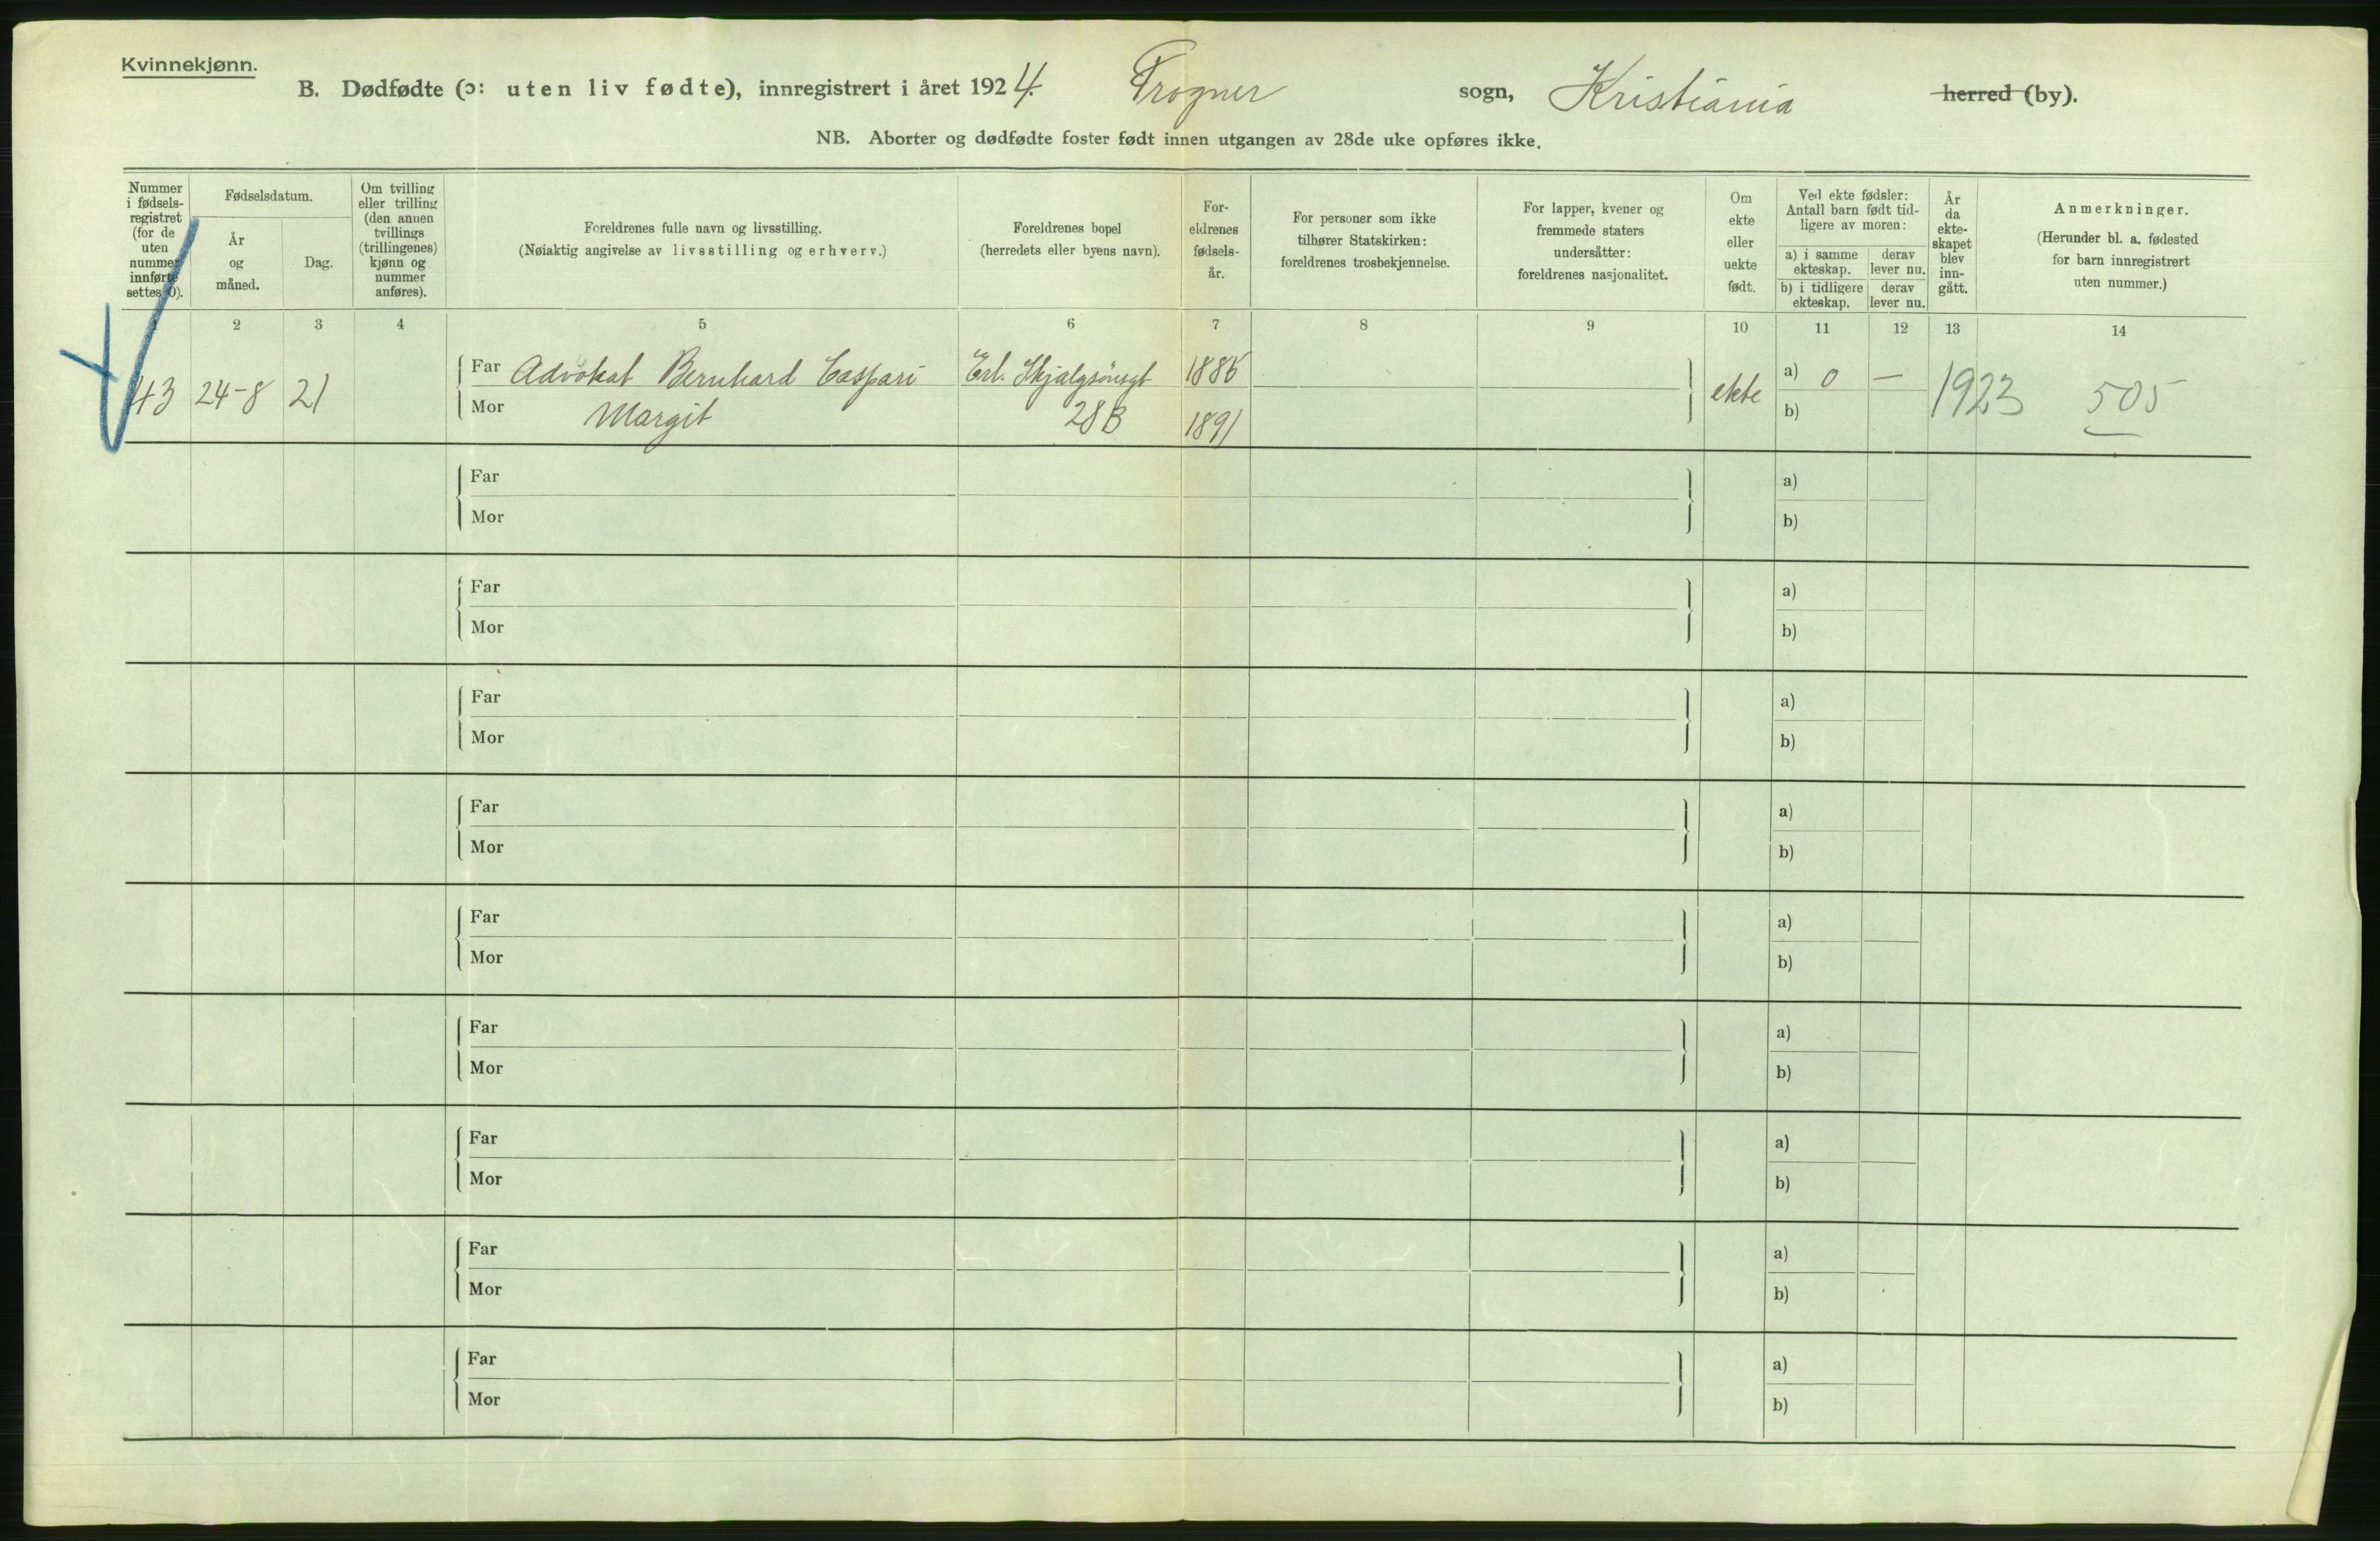 Kvinnekjønn.
B. Dødfødte (ɔ: uten liv fødte), innregistrert i året 1924. Frogner sogn, Kristiania herred (by).
NB. Aborter og dødfødte foster født innen utgangen av 28de uke opføres ikke.
Nummer i fødsels-registret (for de uten nummer innførte settes 0).
Fødselsdatum.
År og måned.
Dag.
Om tvilling eller trilling (den annen tvillings (trillingenes) kjønn og nummer anføres).
Foreldrenes fulle navn og livsstilling.
(Nøiaktig angivelse av livsstilling og erhverv.)
Foreldrenes bopel
(herredets eller byens navn).
For-eldrenes fødsels-år.
For personer som ikke
tilhører Statskirken:
foreldrenes trosbekjennelse.
For lapper, kvener og
fremmede staters
undersåtter:
foreldrenes nasjonalitet.
Om ekte eller uekte født.
Ved ekte fødsler:
Antall barn født tid-
ligere av moren:
a) i samme ekteskap.
derav lever nu.
b) i tidligere ekteskap.
derav lever nu.
År da ekte-skapet blev inn-gått.
Anmerkninger.
(Herunder bl. a. fødested
for barn innregistrert
uten nummer.)
1 2 3 4 5 6 7 8 9 10 11 12 13 14
43 24-8 21
Far Advokat Bernhard Caspari
Erl. Skjalgsønsgt
Mor Margit
28B 1891
ekte
a) 0 —
b)
1923
505
Far
Mor
a)
b)
Far
Mor
a)
b)
Far
Mor
a)
b)
Far
Mor
a)
b)
Far
Mor
a)
b)
Far
Mor
a)
b)
Far
Mor
a)
b)
Far
Mor
a)
b)
Far
Mor
a)
b)